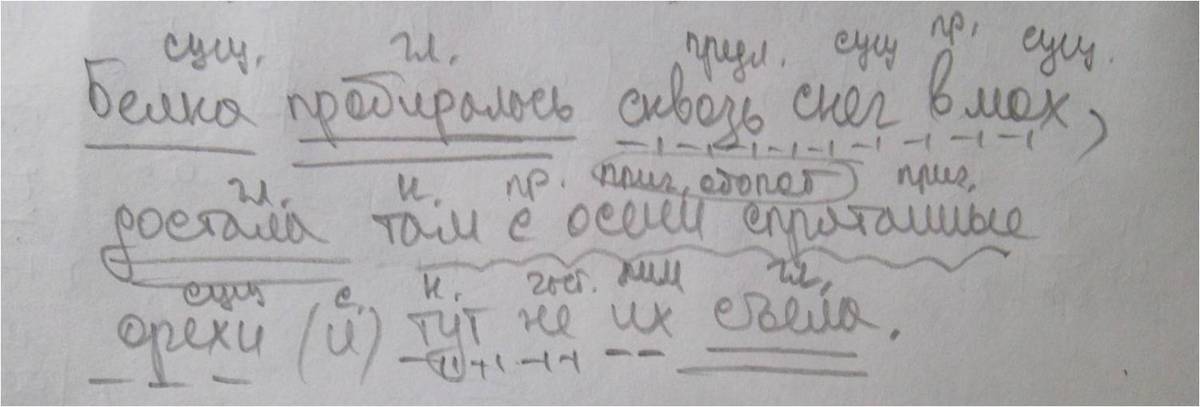 сущ. гл. предл. сущ пр. сущ.
Белка пробиралась сквозь снег в мох,
гл. н. пр. прич. оборот прич.
достала там с осени спрятанные
сущ с. н. част. мим гл.
орехи (и) тут не их съела.